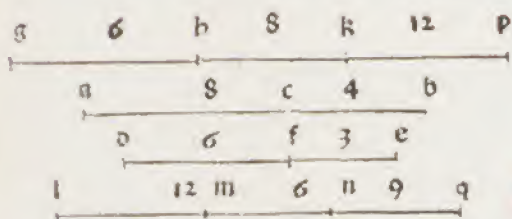 g 6 h 8 k 12 p
a 8 c 4 b
d 6 f 3 e
l 12 m 6 n 9 q